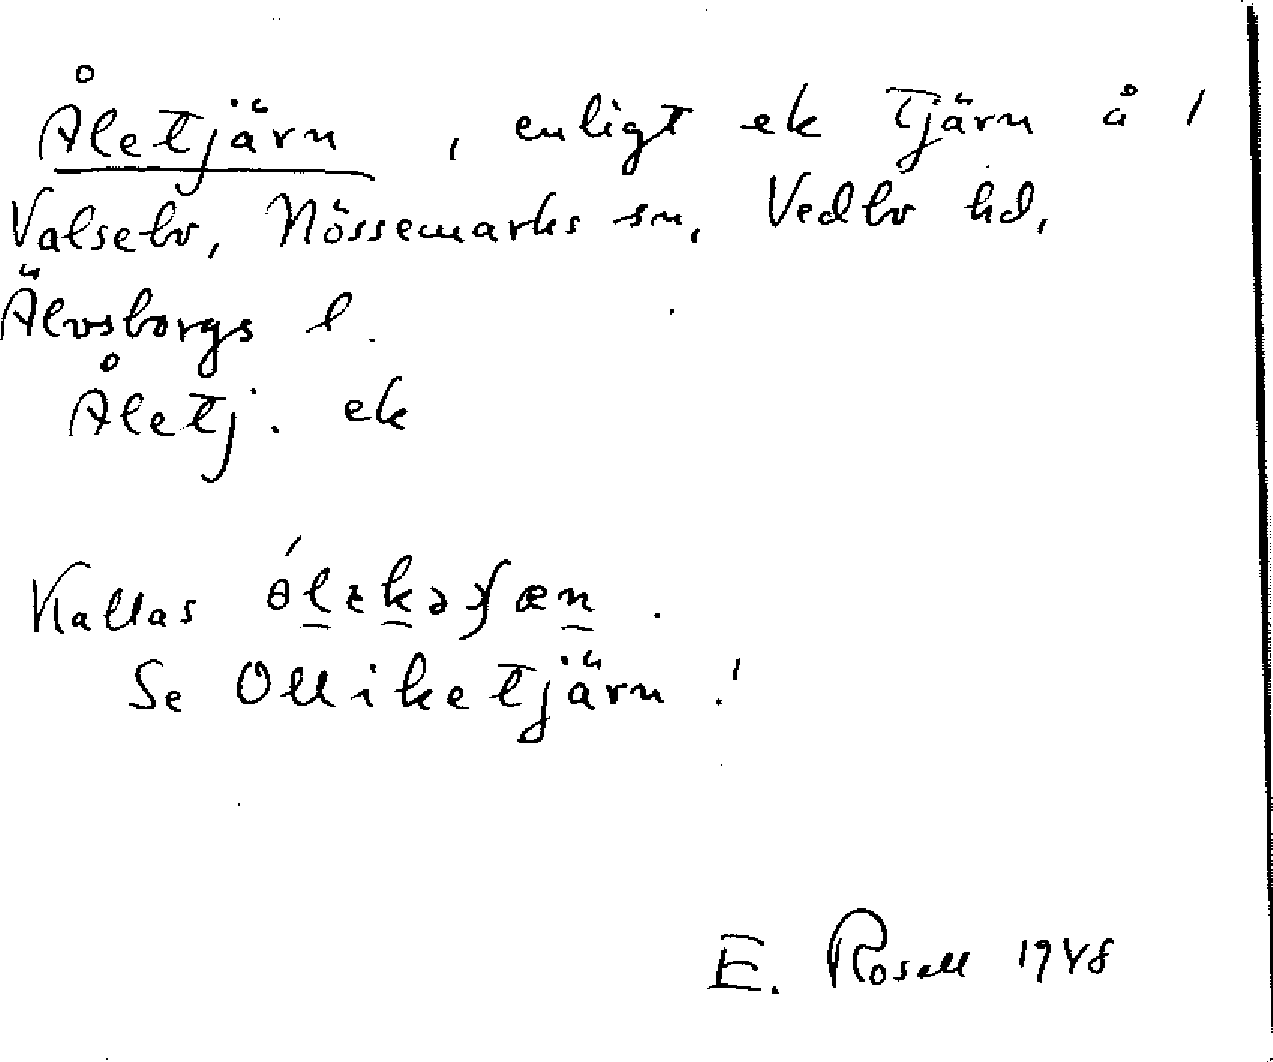 Åletjärn, enligt ek Tjärn å 1
Valsebo, Nössemarks sn, Vedbo hd,
Älvsborgs l.
Åletj. ek
Kallas
Se Olliketjärn!
E. Rosell 1948